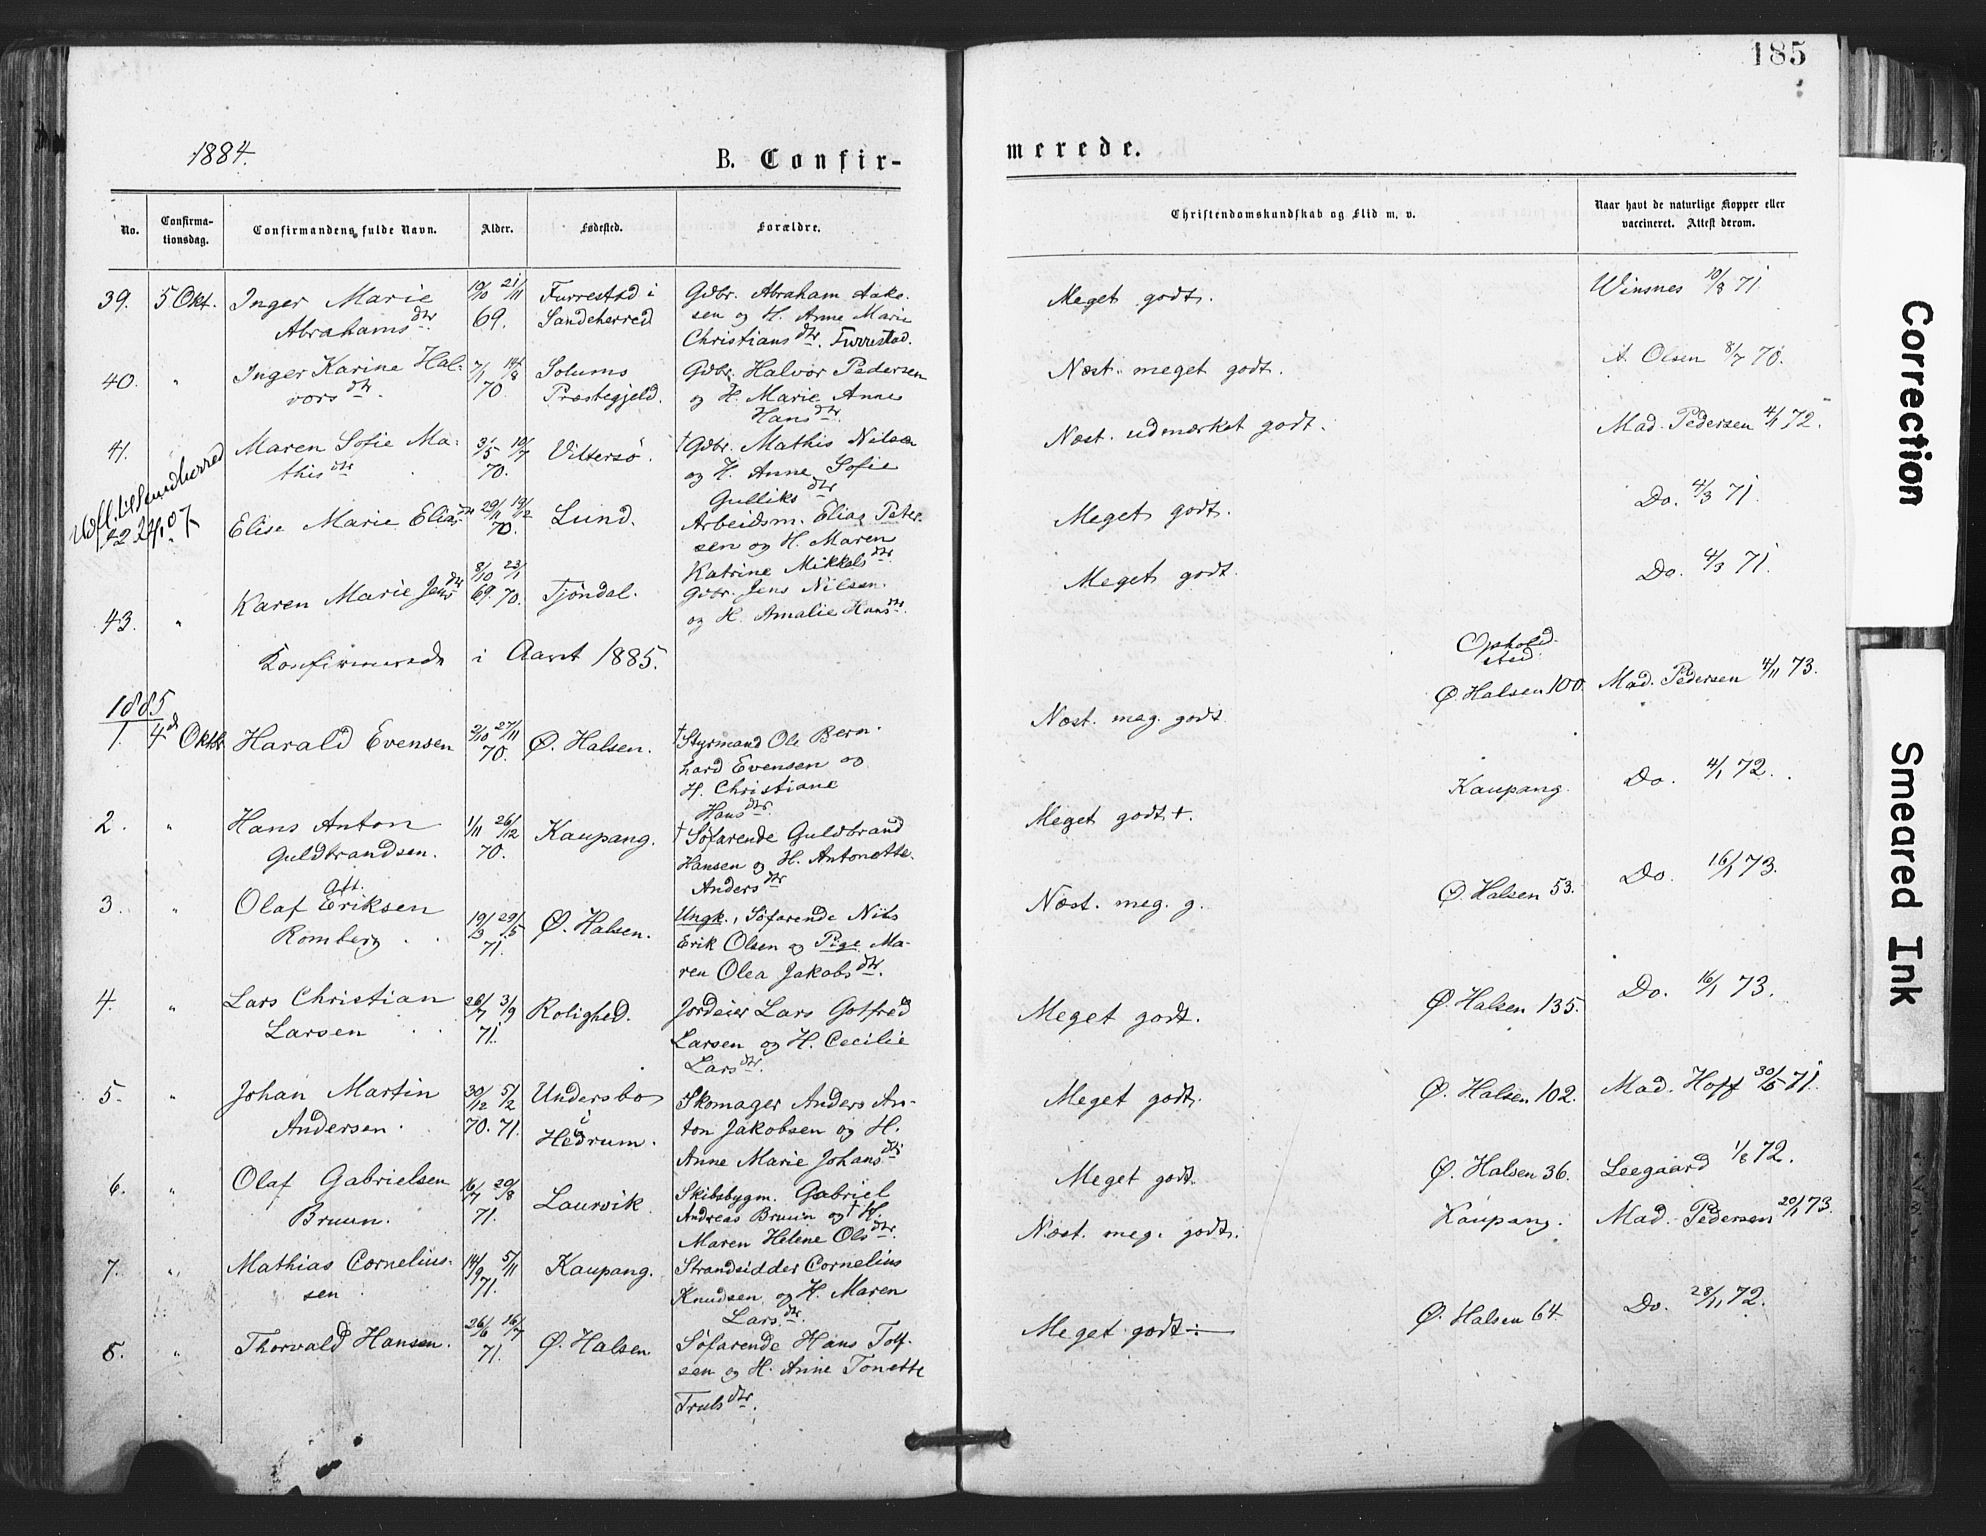 185
1884.
B. Confir-
merede.
No.
Confirma-
tionsdag.
Confirmandens fulde Navn.
Alder.
Fødested.
Forældre.
Christendomskundskab og Flid m. v.
Naar havt de naturlige Kopper eller
vaccineret. Attest derom.
39. 5 Okt. Inger Marie 19/10 21/11 Furrestad i Gdbr. Abraham Aake-
Abrahamsdtr. 69. Sandeherred sen og H. Anne Marie
Christiansdtr. Furrestad.
Meget godt. Winsnes 10/8 71.
40. " Inger Karine Hal- 7/1 14/8 Solums Gdbr. Halvor Pedersen
vorsdtr. 70. Præstegjeld. og H. Marie Anne
Hansdtr.
Næst. meget godt. A. Olsen 8/7 70.
41. Maren Sofie Ma- 3/5 10/7 Viltersø. † Gdbr. Mathis Nilsen
thisdtr. 70. og H. Anne Sofie
Gulliksdtr.
Næst. udmærket godt. Mad. Pedersen 4/1 72.
Elise Marie Eliasdtr 29/11 19/12 Lund. Arbeidsm. Elias Peter-
70. sen og H. Maren
Katrine Mikkelsdtr.
Meget godt. Do. 4/3 71.
43. " Karen Marie Jensdtr 8/10 23/1 Tjøndal. Gdbr. Jens Nilsen.
69. 70. og H. Amalie Hansdtr.
Meget godt. Do. 4/3 71.
Konfirmerede i Aaret 1885.
Opholds-
sted.
1885
1. 4de Oktbr Harald Evensen 2/10 27/11 Ø. Halsen. † Styrmand Ole Bern-
70. hard Evensen og
H. Christiane
Hansdtr.
Næst. meg. godt. Ø. Halsen 100. Mad. Pedersen 4/11 73.
2. " Hans Anton 1/11 26/12 Kaupang. † Søfarende Guldbrand
Guldbrandsen. 70. Hansen og H. Antonette
Andersdtr.
Meget godt +. Kaupang. Do. 4/1 72.
3. " Olaf Eriksen 19/3 29/5 Ø. Halsen. Ungk., Søfarende Nils
Romberg 71. Erik Olsen og Pige Ma-
ren Olea Jakobsdtr.
Næst. meg. g. Ø. Halsen 53. Do. 16/1 73.
4. " Lars Christian 26/7 3/9 Rolighed. Jordeier Lars Gotfred
Larsen 71. Larsen og H. Cecilie
Larsdtr.
Meget godt. Ø. Halsen 135. Do. 16/1 73.
5. " Johan Martin 30/12 5/2 Undersbo Skomager Anders An-
Andersen. 70. 71. i Hedrum. ton Jakobsen og H.
Anne Marie Johansdtr
Meget godt. Ø. Halsen 102. Mad. Hoff 30/5 71.
6. " Olaf Gabrielsen 16/7 20/8 Laurvik. Skibsbygm. Gabriel
Bruun. 71. Andreas Bruun og † H.
Maren Helene Olsdtr.
Meget godt. Ø. Halsen 36. Leegaard 1/8 72.
7. " Mathias Cornelius- 14/9 5/11 Kaupang. Strandsidder Cornelius
sen 71. Knudsen og H. Maren
Larsdtr.
Næst. meg. godt. Kaupang. Mad. Pedersen 20/1 73.
8. " Thorvald Hansen. 26/6 16/7 Ø. Halsen Søfarende Hans Tolf-
71. sen og H. Anne Tonette
Trulsdtr.
Meget godt ÷ Ø. Halsen 64. Do. 28/11 72.
Correction
Smeared Ink